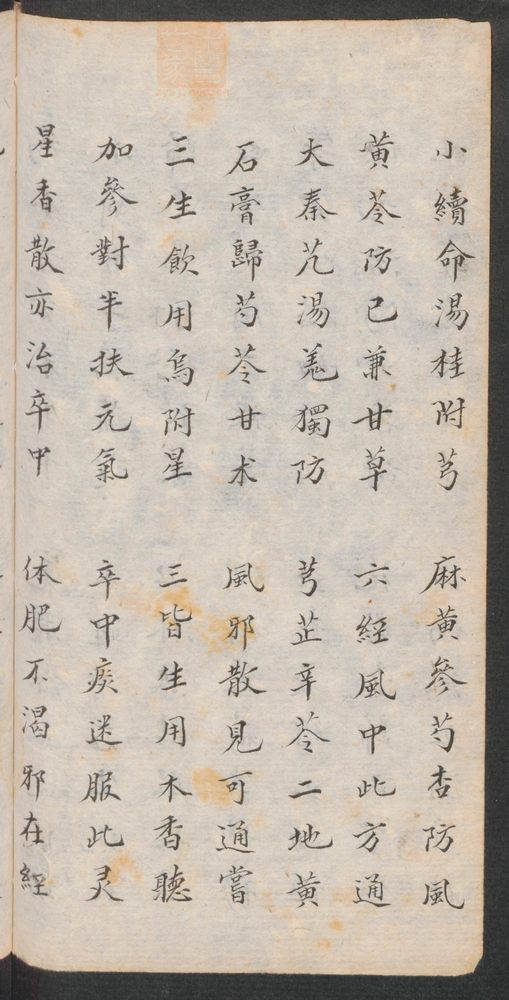 小續命湯桂附芎　麻黄參芍杏防風
黄芩防已兼甘草　六經風中此方通
大秦艽湯羗獨防　芎芷辛芩二地黄
石膏歸芍苓甘术　風邪散見可通嘗
三生飲用烏附星　三皆生用木香聽
加參對半扶元氣　卒中痰迷服此灵
星香散亦治卒中　体肥不渴邪在經